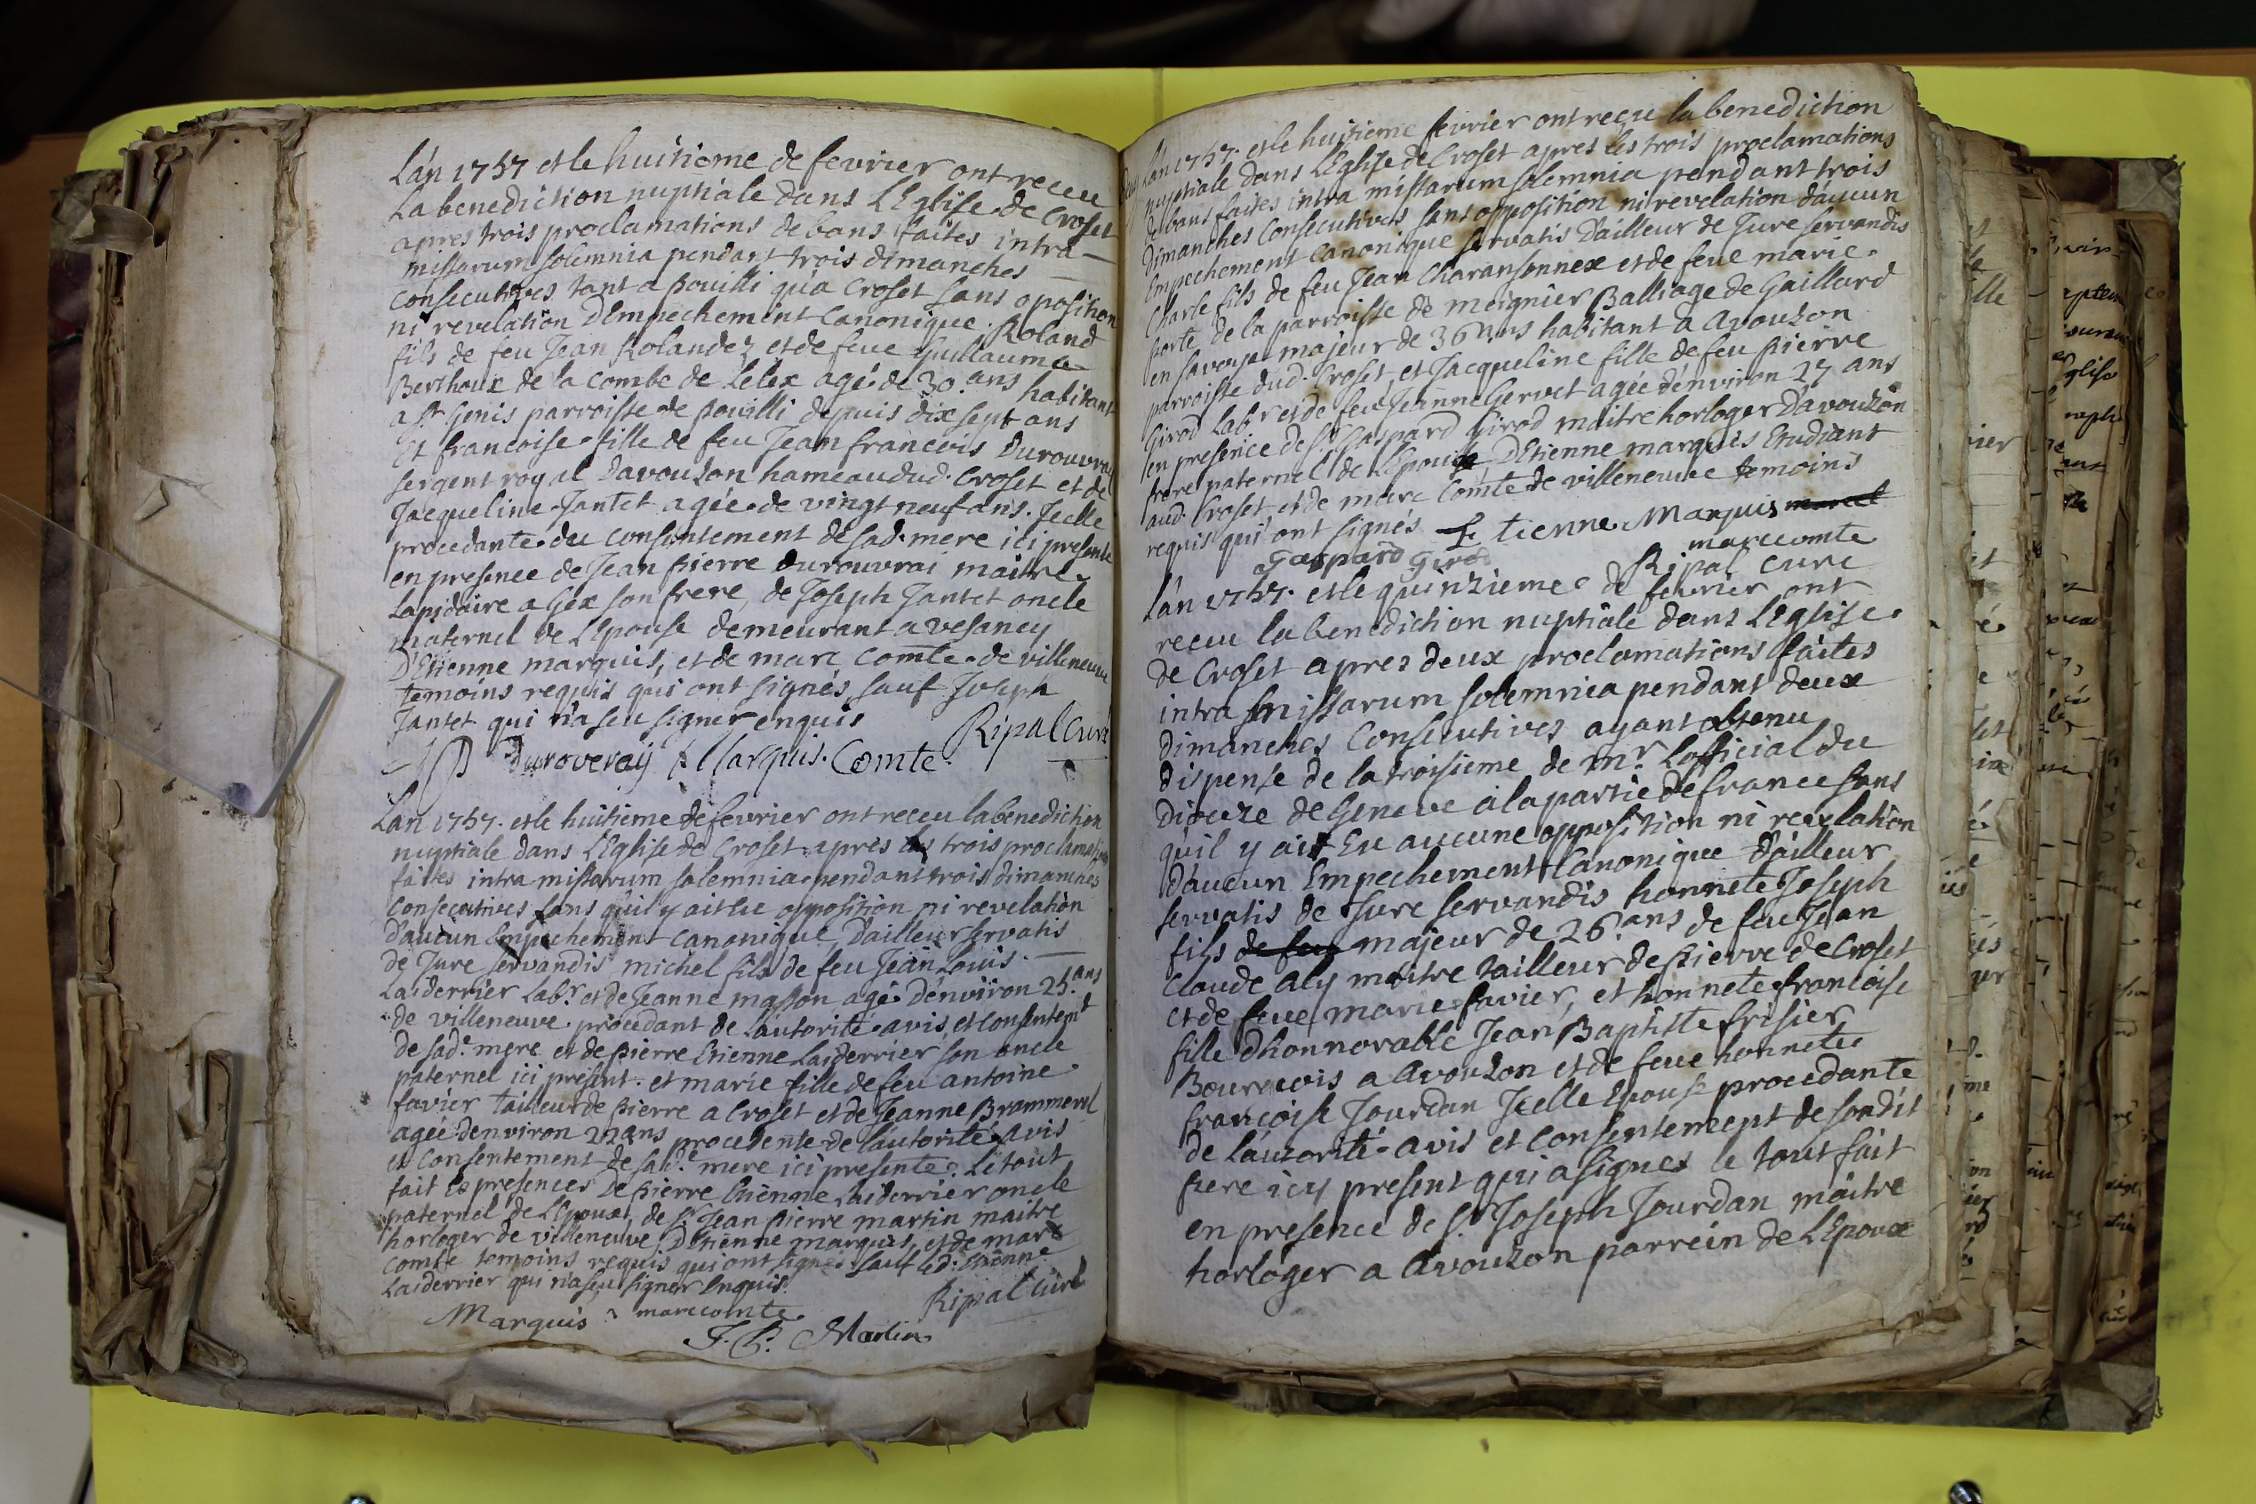 L'an 1757 et le huitieme de fevrier ont receu
La benediction nuptiale dans L'Eglise de Croset
apres trois proclamations de bans faites intra
missarum solemnia pendant trois dimanches
consecutives tant a Pouilli qu'a Croset sans oposition
ni revelation D'Empechement Canonique. Roland
fils de feu Jean Rolandez et de feue Guillauma
Berthoux de la Combe de Lelex agé de 30 ans habitant
a St Genis parroisse de Pouilli depuis dix sept ans
Et francoise fille de feu Jean francois Durouvrai
sergent royal Davouzon hameau dud. Croset et de
Jacqueline Jantet agée de vingt neuf ans. Jcelle
procedante du consentement de sad. mere ici presente
en presence de Jean Pierre Durouvrai maitre
Lapidaire a Gex son frere, de Joseph Jantet oncle
maternel de L'Epouse demeurant a vesancy
D'Etienne marquis, et de marc Comte de villeneuve
temoins requis qui ont signés sauf Joseph
Jantet qui n'a seu signer enquis
Ripal Curé
JP Duroveray E Marquis. Comte
L'an 1757. et le huitieme de fevrier ont receu la benediction
nuptiale dans L'Eglise de Croset apres les trois proclamations
faites intra missarum solemnia pendant trois dimanches
consecutives sans qu'il y ait Eu opposition ni revelation
d'aucun Empechement canonique, D'ailleur servatis
de Jure servandis michel fils de feu Jean Louis
Laiderrier Labr. et de Jeanne masson agé d'environ 25 ans
de villeneuve procedant de l'autorité avis et consentemt
de sade mere et de Pierre Etienne Laiderrier son oncle
paternel ici present. et marie fille de feu antoine
favier tailleur de Pierre a Croset et de Jeanne Brammerel
agée d'environ 22 ans procedente de l'autorité avis
et consentement de sade mere ici presente. Le tout
fait Es presences De Pierre Etienne Laiderrier oncle
paternel de L'Epoux, de Sr Jean Pierre martin maitre
horloger de villeneuve, D'Etienne marquis, et de marc
comte temoins requis qui ont signés sauf led. Etienne
Laiderrier qui n'a seu signer Enquis.
Ripal Curé
Marquis marc comte
J. P. Martin
L'an 1757. et le huitieme fevrier ont reçu la benediction
nuptiale dans L'Eglise de Croset apres les trois proclamations
de bans faites intra missarum solemnia pendant trois
dimanches Consecutives sans opposition ni revelation d'aucun
Empechement Canonique servatis D'ailleur de Jure servandis
Charle fils de feu Jean Charansonnex et de feue marie
porte de la parroisse de moignier Balliage de Gaillard
en savoye majeur de 36 ans habitant a Avouzon
parroisse dud. Croset, et Jacqueline fille de feu Pierre
Girod Labr et de feu Jeanne Gervet agée d'environ 27 ans
en presence de Sr Gaspard Girod maitre horloger D'avouzon
frere paternel de L'Epouse, D'Etienne marquis Etudiant
aud. Croset et de marc Comte de villeneuve temoins
requis qui ont signés E tienne Marquis
Gaspard Girod marc comte
Ripal Curé
L'an 1757. et le quinzieme de fevrier ont
recuu la benediction nuptiale dans L'Eglise
de Croset apres deux proclamations faites
intra missarum solemnia pendant deux
dimanches Consecutives ayant obtenu
dispense de la troisieme de mr. L'official du
Dioceze de Geneve a la partie de france sans
qu'il y ait Eu aucune opposition ni revelation
d'aucun Empechement Canonique d'ailleur
servatis de Jure servandis honnete Joseph
fils de feu majeur de 26 ans de feu Jean
Claude Aly maitre tailleur de Pierre de Croset
et de feue marie favier, et honnete francoise
fille d'honnorable Jean Baptiste frisier
Bourgeois a Avouzon et de feue honnete
françoise Jourdan Jcelle Epouse procedante
de l'autorité avis et Consentement de son dit
frere icy present qui a signes le tout fait
en presence de S. Joseph Jourdan maitre
horloger a Avouzon parrein de L'Epoux